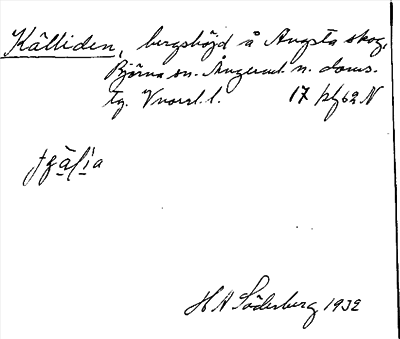 Källiden, bergshöjd å Angsta skog,
Björna sn. Ångerml. n. doms.
tg. Vnorrl. l. 17 h62 N
H A Söderberg 1932